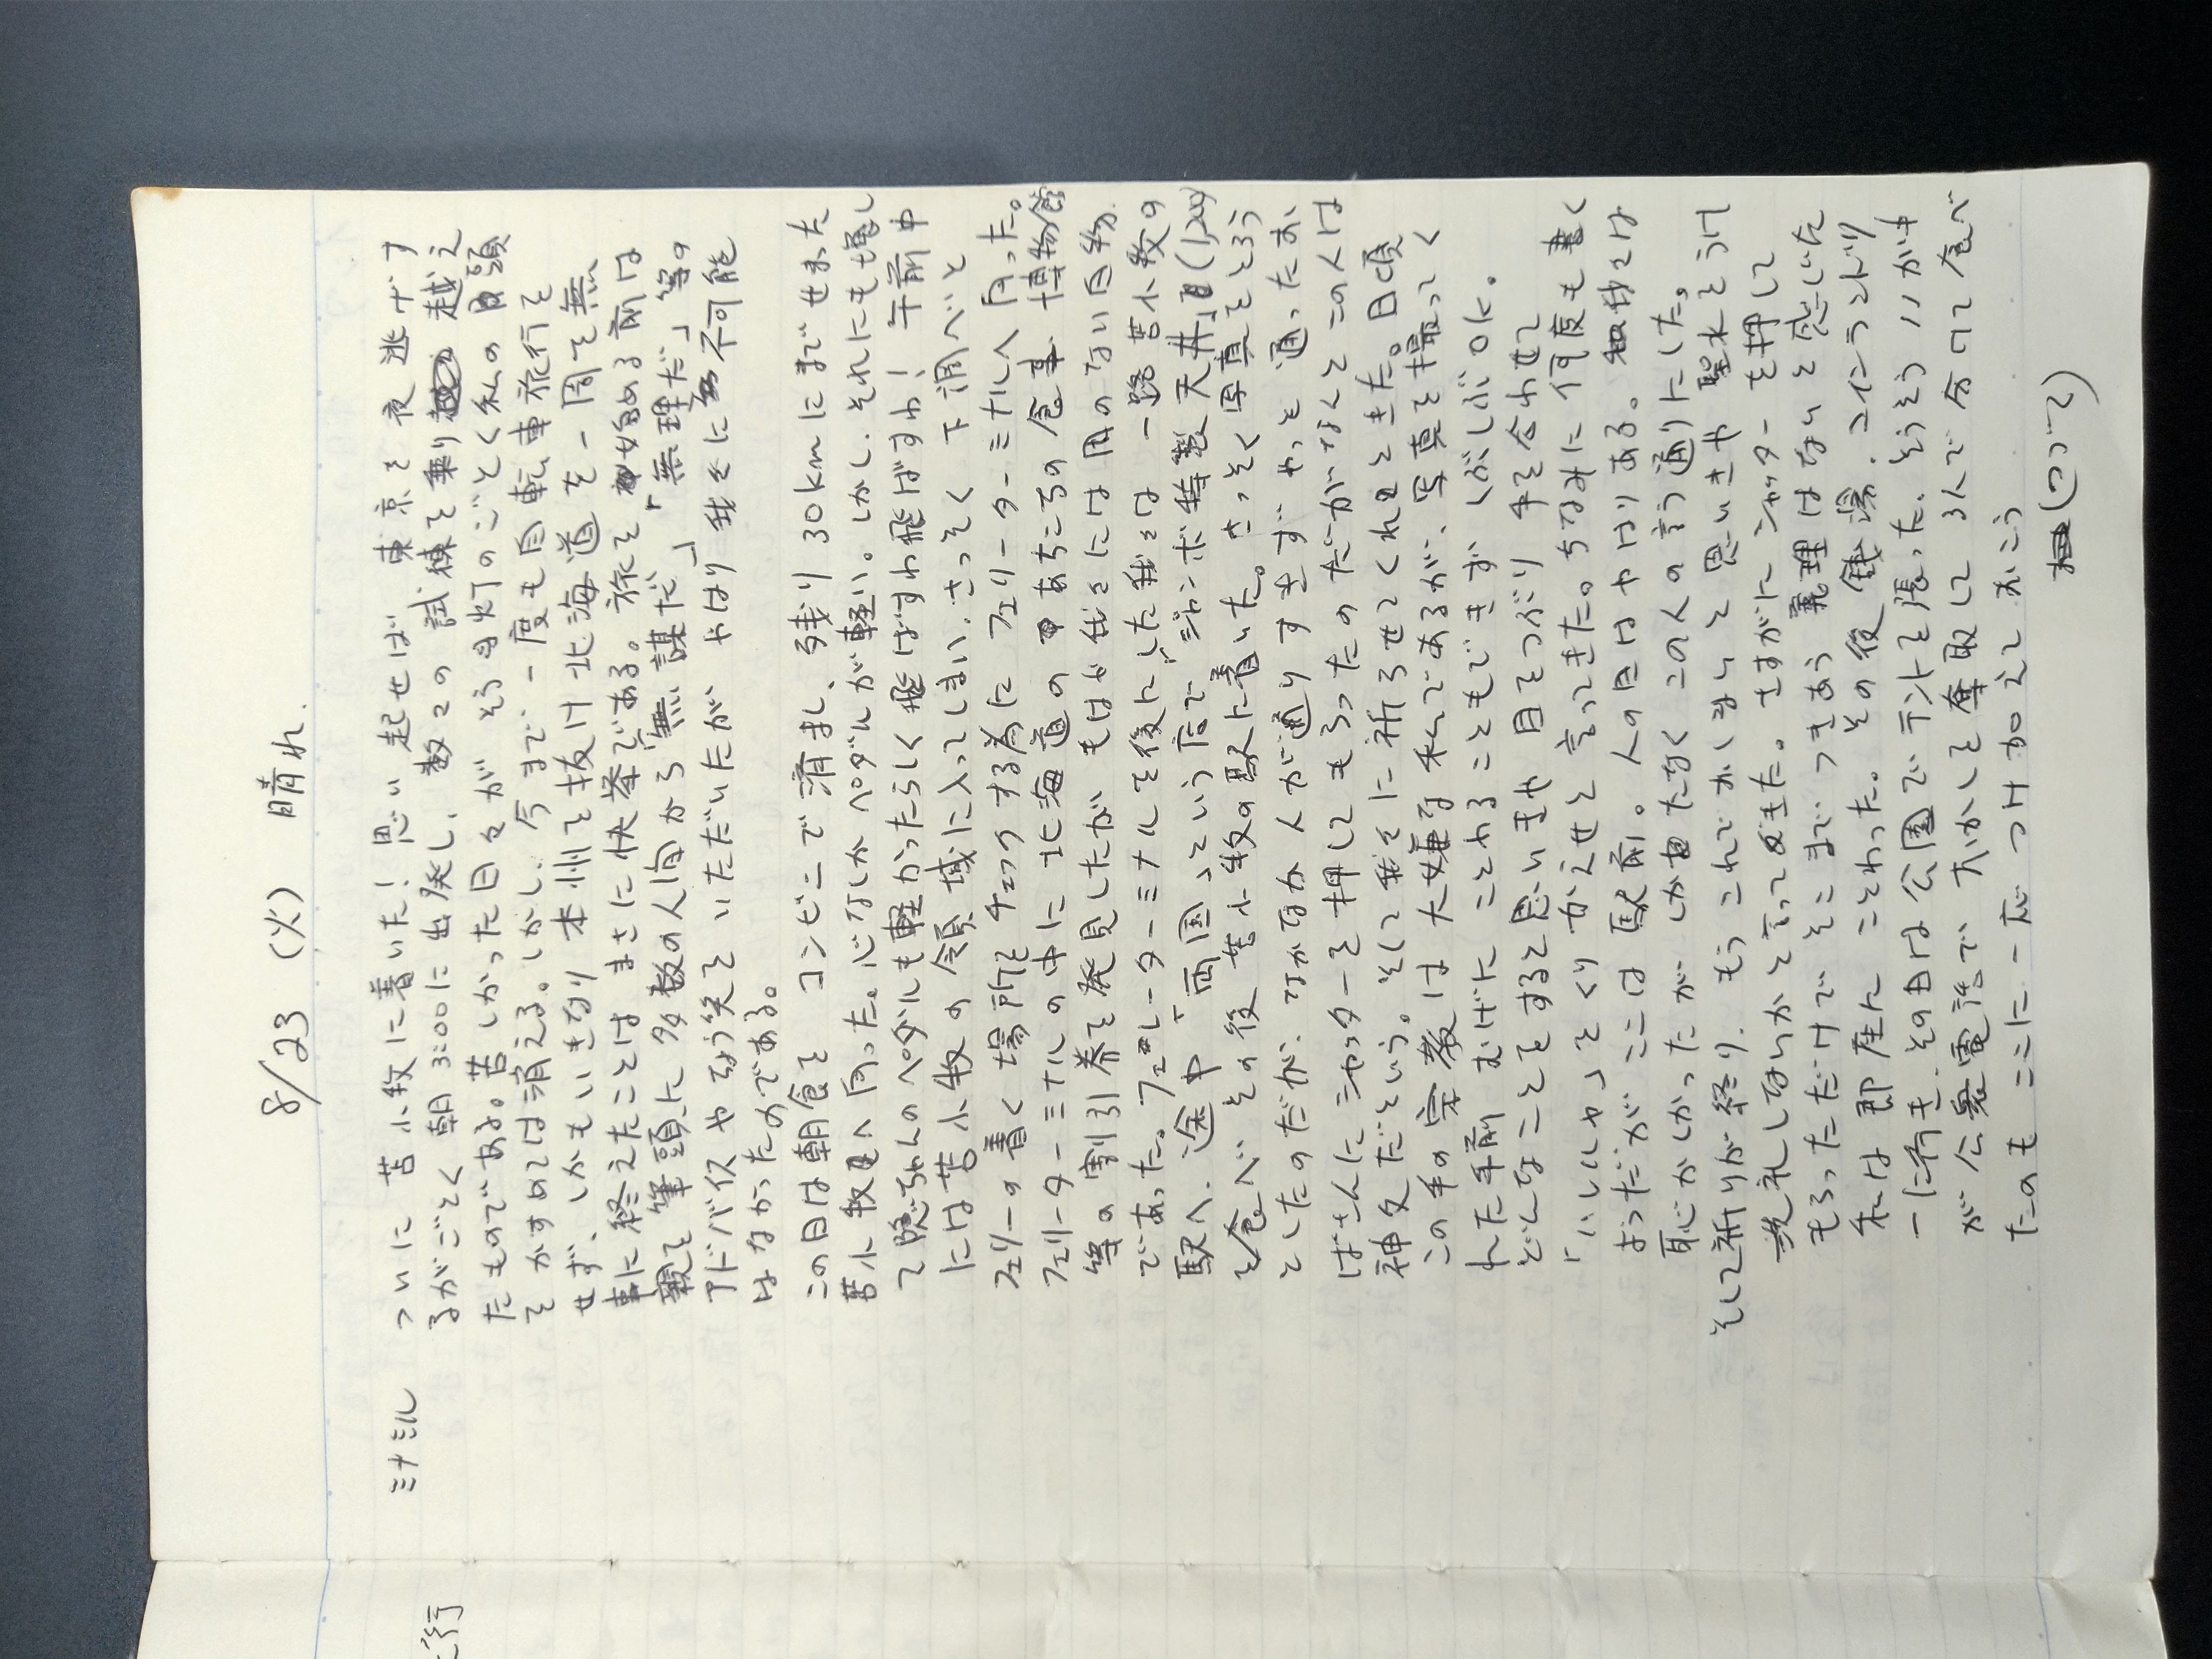 8/23 (火) 晴れ.
ミナミル
ついに 苫小牧に着いた! 思い起せば 東京を夜逃げす
るがごとく 朝3:00に出発し、数々の試練を乗り越え
たものである。苦しかった日々が そう馬灯のごとく私の目頭
をかすめては消える。しかし、今まで一度も自転車旅行を
せず、しかもいきなり 本州を抜け北海道を一周を無
事に終えたことは まさに快挙である。旅を始める前は
親を筆頭に多数の人間から「無謀だ」「無理だ」等の
アドバイスやちょう笑を いただいたが やはり我々に不可能
はなかったのである。
この日は朝食を コンビニで済まし、残り30kmにまでせまった
苫小牧へ向った。心なしかペダルが軽い。しかし、それにも増し
て隠ちゃんのペダルも軽かったらしく 飛ばすわ飛ばすわ! 午前中
には苫小牧の領域に入ってしまい、さっそく 下調べと
フェリーの着く場所をチェックする為に フェリーターミナルへ向った。
フェリーターミナルの中に北海道のあちこちの食事、博物館
等の割引券を発見したが もはや我々には用のない目物
であった。フェリーターミナルを後にした我々は一路苫小牧の
駅へ、途中「両国」という店で「ジャンボ特製天丼」(1,200)
を食べ、その後 苫小牧の駅に着いた。さっそく写真をとろう
としたのだが、なかなか人が通りすぎず やっと通ったおい
ばさんにシャッターを押してもらったのだが なんとこの人は
神父だという。そして我々に祈らせてくれときた。日頃
この手の宗教は大嫌な私であるが、写真を撮ってく
れた手前 むげに ことわることもできず しぶしぶOK。
どんなことをすると思いきや 目をつぶり 手を合わせて
「いしルや」をくり かえせと言ってきた。ちなみに何度も書く
おっだが ここは駅前。人の目はやはりある。我々は
恥しかったが しかたなく この人の言う通りにした。
そして祈りが終り、もうこれでおしまいと思いきや 聖水をうけ
洗礼しないかと言ってきた。さすがにシャッターを押して
もらっただけで そこまで つきあう義理はないと感じた
私は即座にことわった。その後 銭湯、コインランドリ
ーに行き、その日は公園でテントを張った。そうそうハガ中
が公衆電話で大かしを奪取して3人で分けて食べ
たのも ここに一応 つけ加えておこう
(つづく)
行